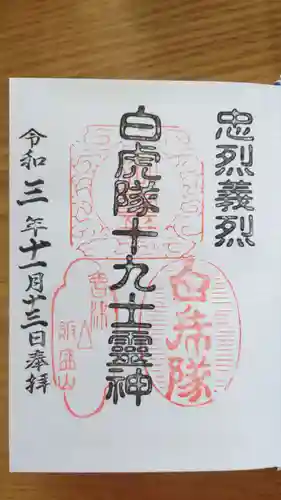 忠烈義烈
白虎隊十九士霊神
令和三年十一月十三日奉拝
白虎隊
会津
飯盛山